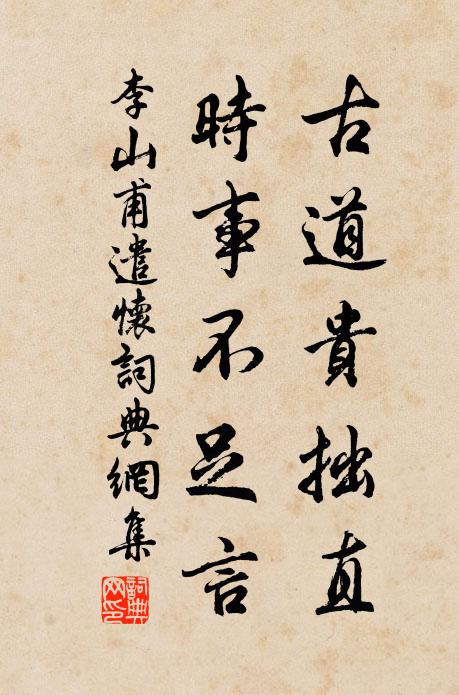 古道貴拙直
時事不足言
李山甫遣懷詞典網集
詞典網印